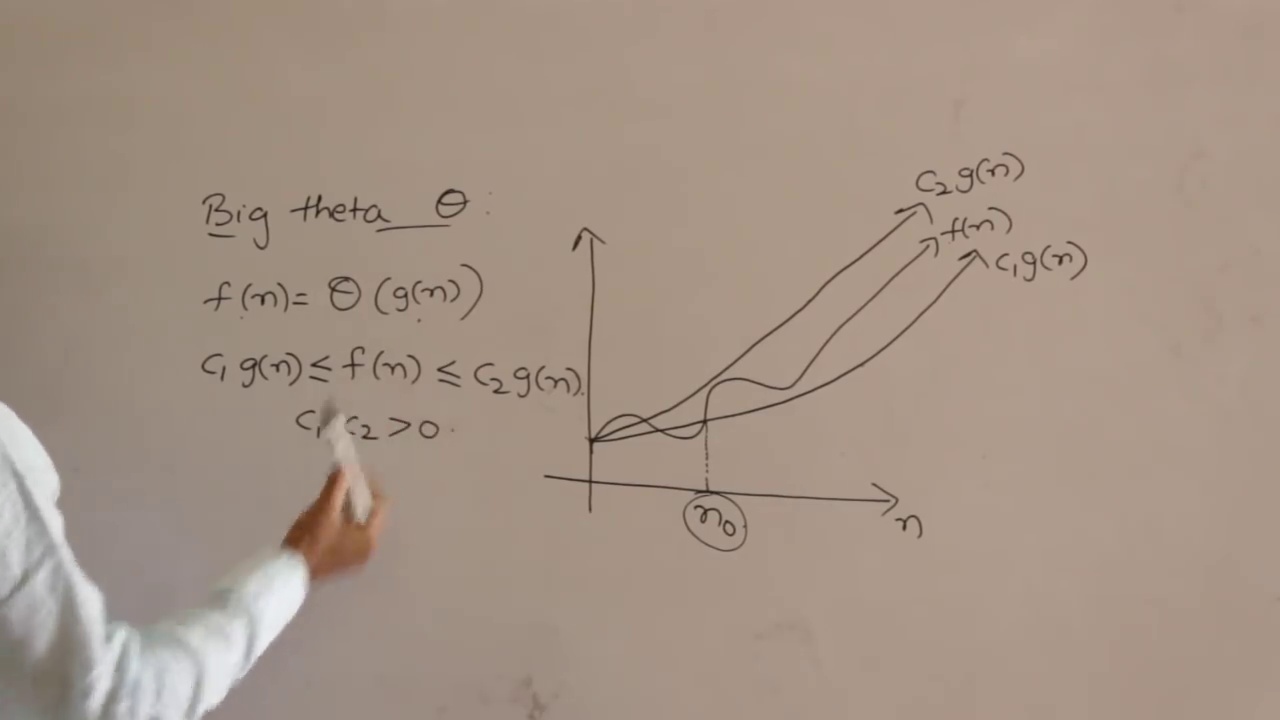 Big theta θ
f(n) = θ(g(n))
c₁ g(n) ≤ f(n) ≤ c₂ g(n).
c₁ c₂ > 0.
c₂ g(n)
f(n)
c₁ g(n)
n₀
n